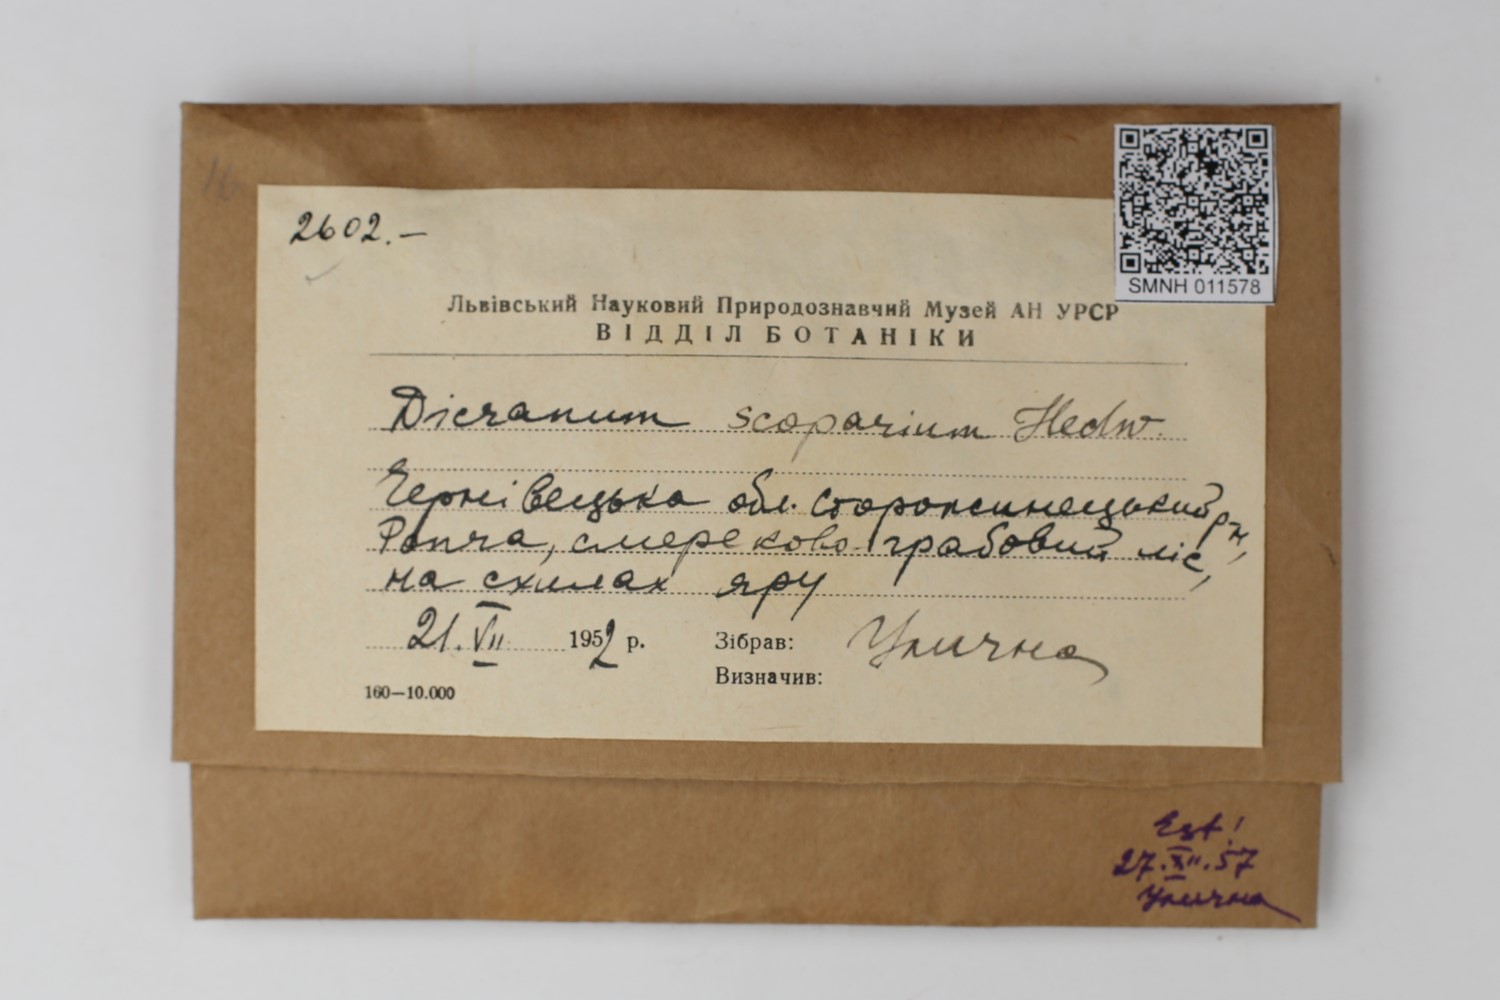 2602.—
SMNH 011578
Львівський Науковий Природознавчий Музей АН УРСР
ВІДДІЛ БОТАНІКИ
Dicranum scoparium Hedw.
Чернівецька обл. Сторожинецький р-н,
Ропча, смереково-грабовий ліс,
на схилах яру
21.VII 1952 р. Зібрав: Улична
Визначив:
160—10.000
Est!
27.XII.57
Улична